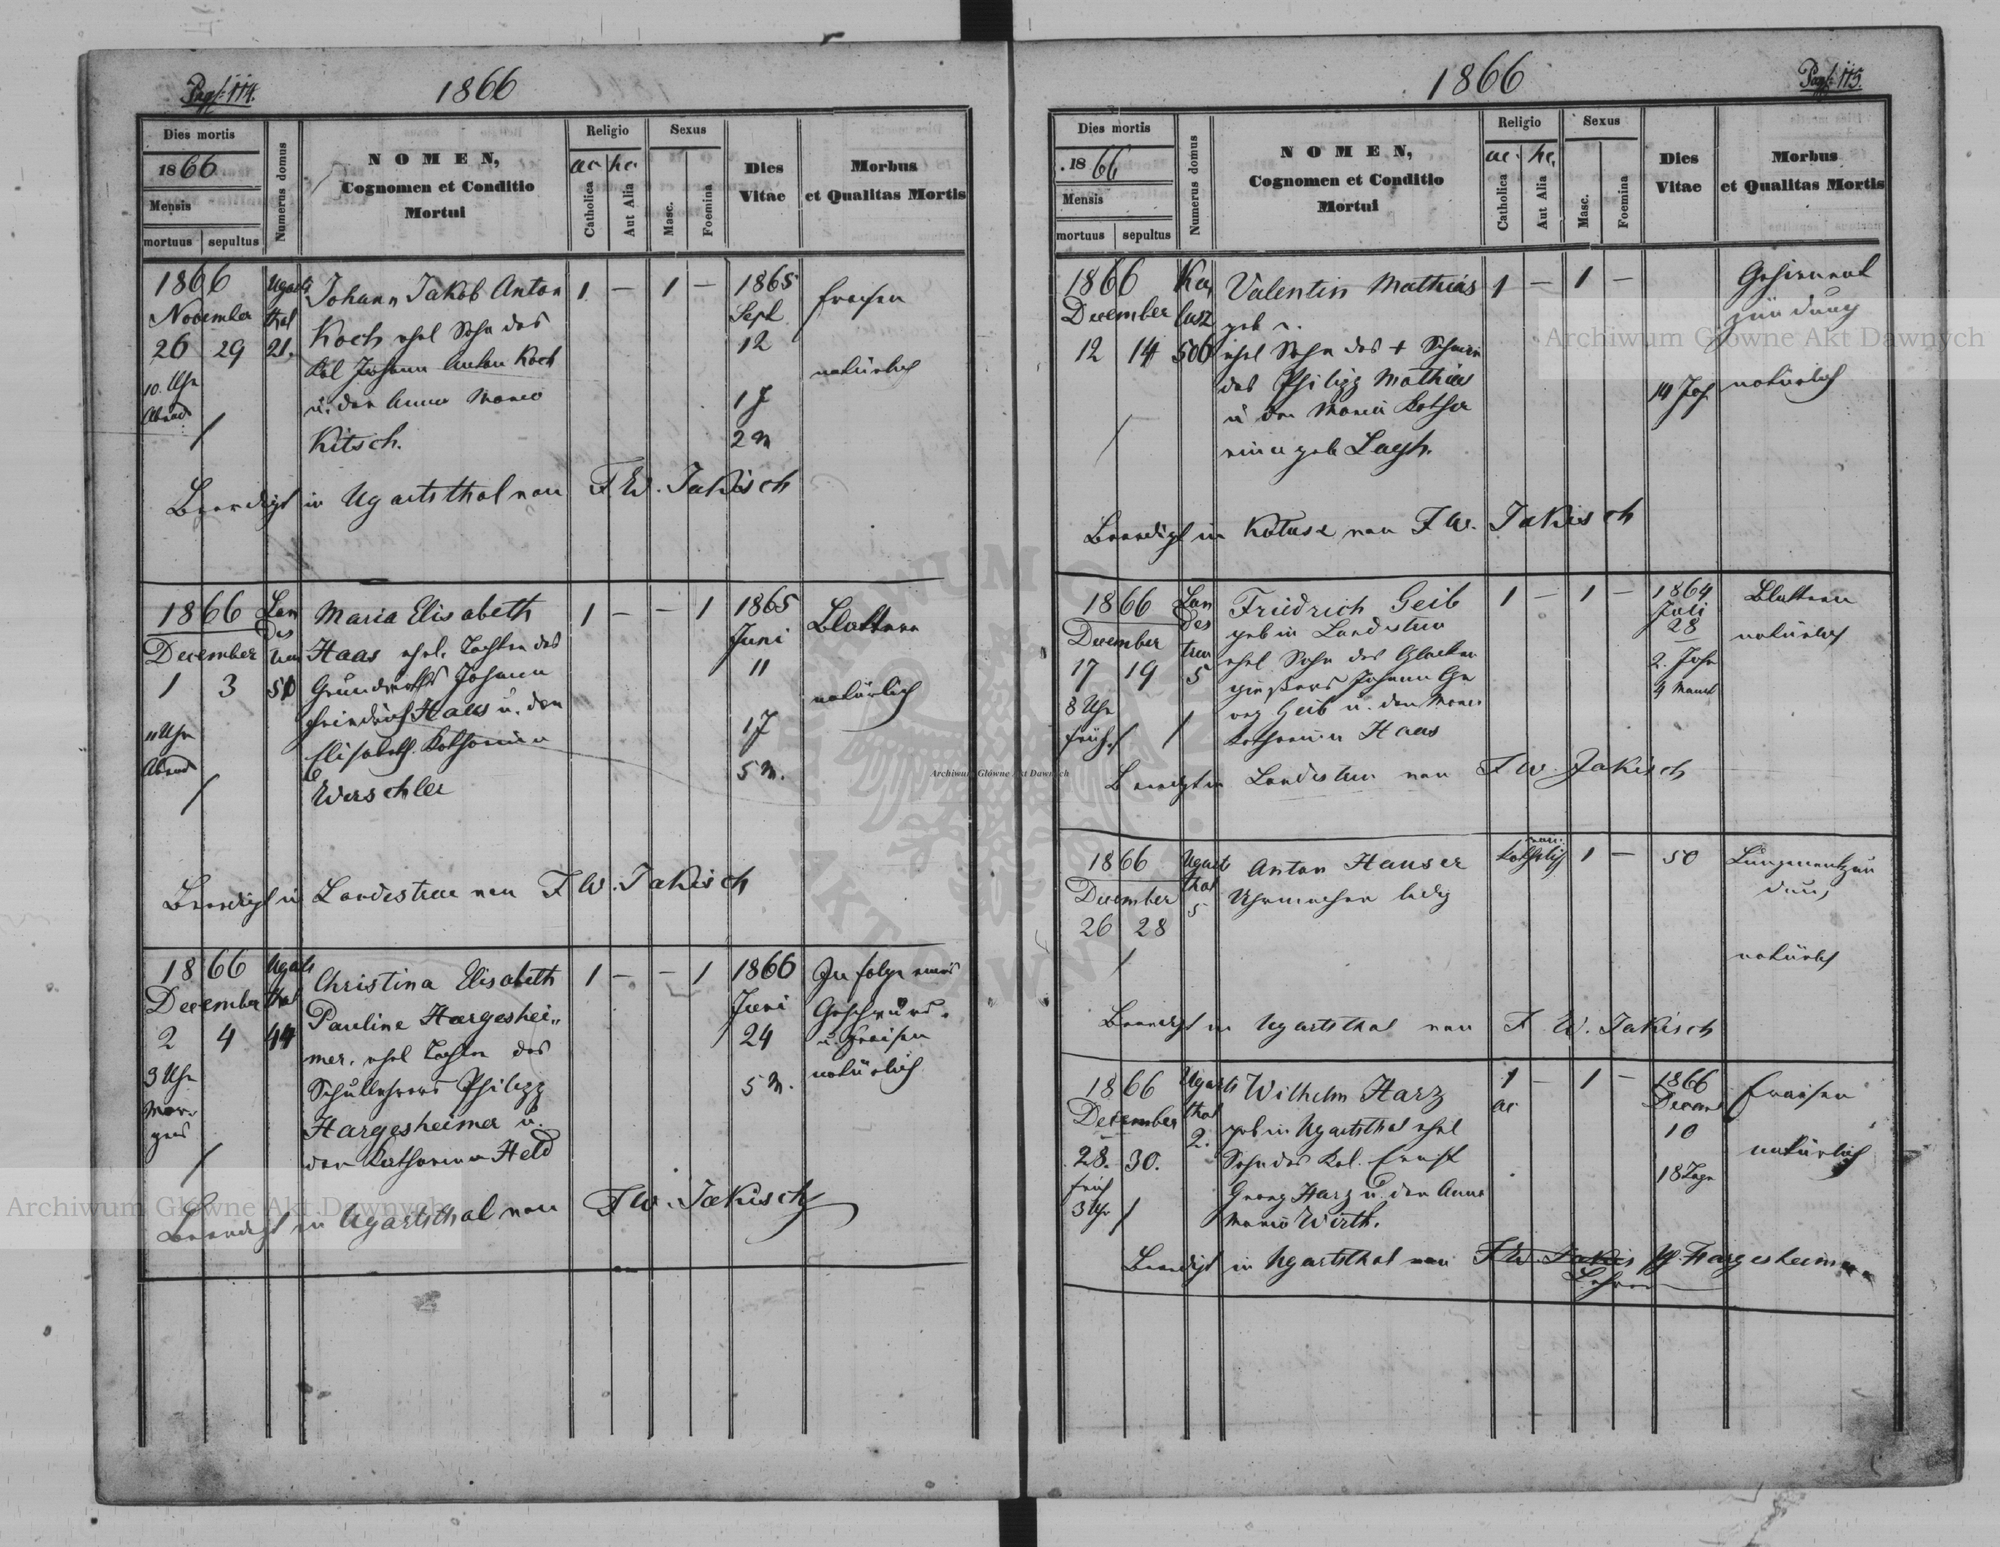 Pag: 114.
1866
Dies mortis
1866
Mensis
mortuus sepultus
Numerus domus
NOMEN,
Cognomen et Conditio
Mortui
Religio
ac hc
Catholica
Aut Alia
Sexus
Masc.
Foemina
Dies
Vitae
Morbus
et Qualitas Mortis
1866
November
26 29
10 Uhr
Abend
Ugarts
thal
21.
Johann Jakob Anton
Koch ehel Sohn des
Kol Johann Anton Koch
u. der Anna Maria
Kitsch.
1 — 1 —
1865
Sept
12
1 J
2 M
Fraisen
natürlich
Beerdigt in Ugartsthal von F W. Jakisch
1866
December
1 3
11 Uhr
Abend
Lan
des
treu
50
Maria Elisabeth
Haas ehel. Tochter des
Grundwirths Johann
Friedrich Haas u. der
Elisabeth Katharina
Werschler
1 — — 1
1865
Juni
11
1 J
5 M.
Blattern
natürlich
Beerdigt in Landestreu von F W. Jakisch
1866
December
2 4
3 Uhr
Mor-
gens
Ugarts
thal
44
Christina Elisabeth
Pauline Hargeshei-
mer, ehel Tochter des
Schullehrers Philipp
Hargesheimer u.
der Katharina Held
1 — — 1
1866
Juni
24
5 M.
In folge eines
Geschwürs
u. Fraisen
natürlich
Beerdigt in Ugartsthal von F W. Jakisch
Pag: 115.
1866
Dies mortis
1866
Mensis
mortuus sepultus
Numerus domus
NOMEN,
Cognomen et Conditio
Mortui
Religio
ac. hc.
Catholica
Aut Alia
Sexus
Masc.
Foemina
Dies
Vitae
Morbus
et Qualitas Mortis
1866
December
12 14
Ka
lusz
506
Valentin Mathias
geb
ehel Sohn des +
des Philipp Mathias
u der Maria Kathar
rina geb
1 — 1 —
14 Jah
zündung
natürlich
Beerdigt in Kalusz von F W. Jakisch
1866
December
17 19
8 Uhr
früh
Lan
des
treu
5
Friedrich Geib
geb in Landestreu
ehel Sohn des Glocken
giessers Johann Ge
org Geib u. der Maria
Katharina Haas
1 — 1 —
1864
Juli
28
2. Jahr
4 Monat
Blattern
natürlich
Beerdigt in Landestreu von F W. Jakisch
1866
December
26 28
Ugarts
thal
5
Anton Hauser
Uhrmacher ledig
Katholisch
1 —
50
Lungenentzün
dung
natürlich
Beerdigt in Ugartsthal von F W. Jakisch
1866
December
28. 30.
früh
3 Uhr
Ugarts
thal
2.
Wilhelm Harz
geb in Ugartsthal ehel
Sohn des Kol. Ernst
Georg Harz u. der Anna
Maria Wirth.
1 — 1 —
ac
1866
Decem
10
18 Tage
Fraisen
natürlich
Beerdigt in Ugartsthal von F W. Jakis Hargesheimer
Lehrer
Archiwum Główne Akt Dawnych
Archiwum Główne Akt Dawnych
Archiwum Główne Akt Dawnych